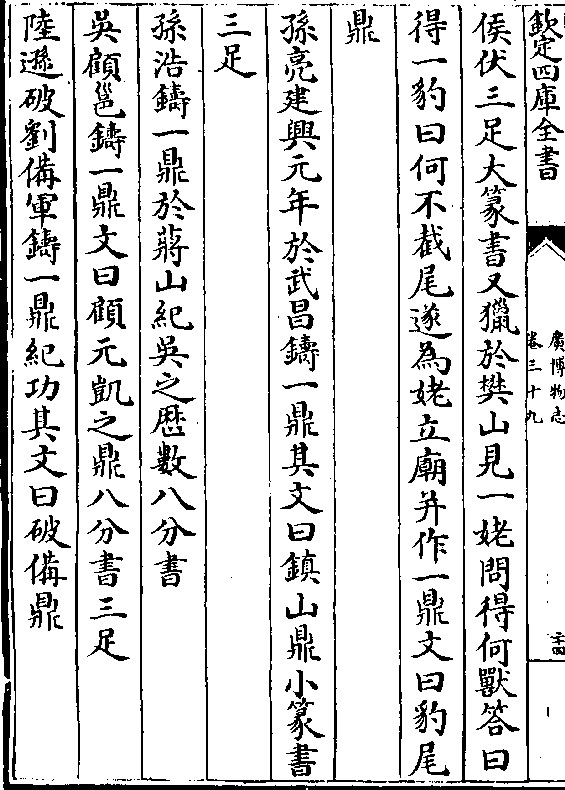 欽定四庫全書
廣博物志
卷三十九
二十四
侯伏三足大篆書又獵於樊山見一姥問得何獸答曰
得一豹曰何不截尾遂為姥立廟并作一鼎文曰豹尾
鼎
孫亮建興元年於武昌鑄一鼎其文曰鎮山鼎小篆書
三足
孫浩鑄一鼎於蔣山紀吳之歴數八分書
吳顧邕鑄一鼎文曰顧元凱之鼎八分書三足
陸遜破劉備軍鑄一鼎紀功其文曰破備鼎